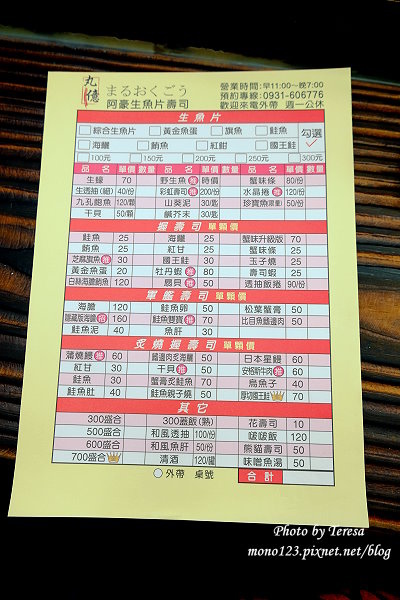 丸億
まるおくごう
阿豪生魚片壽司
營業時間:早11:00~晚7:00
預約專線:0931-606776
歡迎來電外帶 週一公休
生魚片
綜合生魚片 黃金魚蛋 旗魚 鮭魚 勾選
海鱺 鮪魚 紅魽 國王鮭
100元 150元 200元 250元 300元
品名 單價 數量 品名 單價 數量 品名 單價 數量
生蠔 70 野生魚 推 時價 蟹味條 80/份
生透抽(細) 40/份 彩虹壽司 推 200/份 水晶捲 推 120/份
九孔鮑魚 120/顆 山葵泥 30/匙 珍寶魚(限量) 50/份
干貝 50/顆 鹹芥末 30/匙
握壽司 單顆價
鮭魚 25 海鱺 25 蟹味升級版 70
鮪魚 25 紅魽 25 蟹味條 25
芝麻旗魚 推 25 國王鮭 30 玉子燒 25
黃金魚蛋 20 牡丹蝦 推 80 壽司蝦 25
白絲海膽鮪魚 120 扇貝 推 50 透抽飯捲 90/份
軍艦壽司 單顆價
海膽 120 鮭魚卵 50 松葉蟹膏 50
隱藏版海膽 招 160 鮭魚雙寶 推 70 比目魚鰭邊肉 50
鮭魚泥 40 魚肝 30
炙燒握壽司 單顆價
蒲燒鰻 推 60 鰭邊肉炙海鱺 50 日本星鰻 60
紅甘 30 干貝 推 50 安格斯牛肉 推 60
鮭魚 30 蟹膏炙鮭魚 70 烏魚子 40
鮭魚肚 40 鮭魚親子燒 50 厚切國王鮭 70
其它
300盛合 300蓋飯(熟) 花壽司 10
500盛合 和風透抽 100/份 啵啵飯 120
600盛合 和風魚肝 50/份 熊貓壽司 50
700盛合 清酒 120/罐 味噌魚湯 50
外帶 桌號 合計
Photo by Teresa
mono123.pixnet.net/blog